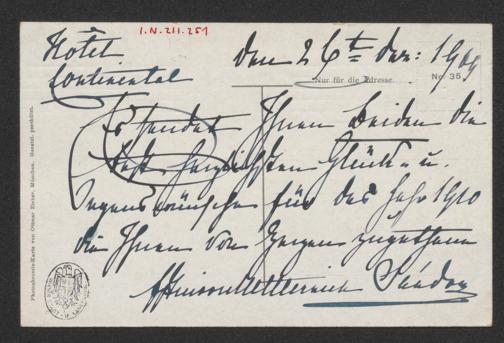 I.N. 211.251
Hôtel
Continental
den 26ten Dez: 1909
Nur für die Adresse.
No. 35
Es sendet Ihnen beiden die
herzlichsten Glück- u.
Segenswünsche für das Jahr 1910
die Ihnen von Herzen zugethane
Sándor
Photochromie-Karte von Ottmar Zieher, München. Gesetzl. geschützt.